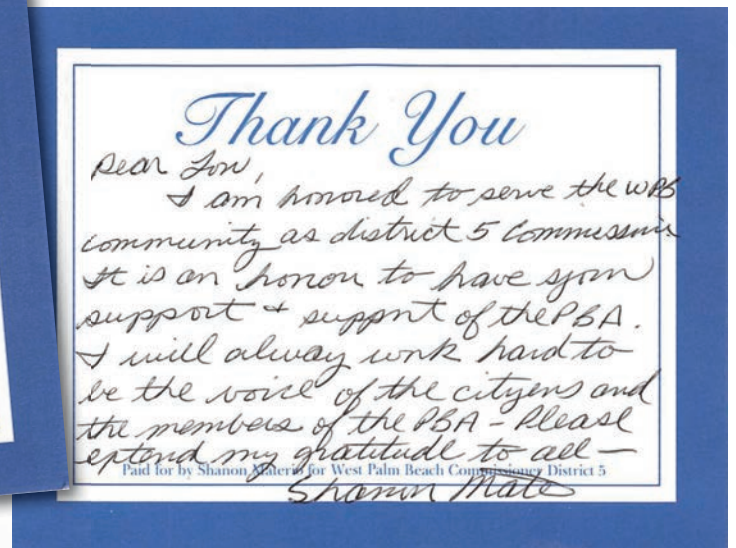 Thank You
Dear Lou,
I am honored to serve the WPB
community as district 5 Commissioner
It is an honor to have your
support + support of the PBA.
I will alway work hard to
be the voice of the cityens and
the members of the PBA - Please
extend my gratitude to all -
Paid for by Shanon Materio for West Palm Beach Commissioner District 5
Shanon Mate